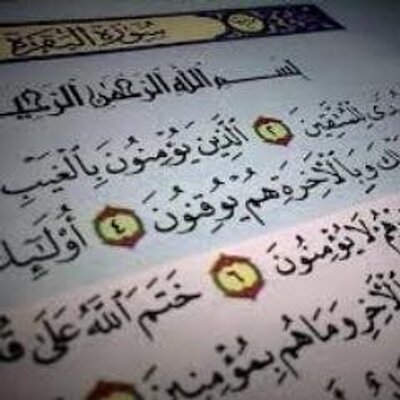 سورة البقرة
بسم الله الرحمن
لِّلْمُتَّقِينَ ٢ الَّذِينَ يُؤْمِنُونَ بِالْغَيْبِ
وَبِالْآخِرَةِ هُمْ يُوقِنُونَ ٤ أُولَٰئِكَ
لَا يُؤْمِنُونَ ٦ خَتَمَ اللَّهُ عَلَىٰ
الْآخِرِ وَمَا هُم بِمُؤْمِنِينَ